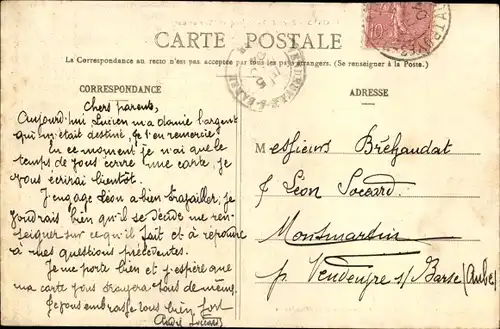 CARTE POSTALE
La Correspondance au recto n'est pas acceptée par tous les pays étrangers. (Se renseigner à la Poste.)
CORRESPONDANCE
Chers parents,
Aujourd'hui Lucien m'a donné l'argent
qui m'était destiné, Je l'en remercie
En ce moment je n'ai que le
temps de vous écrire une carte, je
vous écrirai bientôt.
J'engage Léon a bien travailler, je
voudrais bien qu'il se décide me ren-
seigner sur ce qu'il fait et à répondre
à mes questions précédentes.
Je me porte bien et j'espère que
ma carte vous trouvera tous de même.
Je vous embrasse tous bien fort
André
ADRESSE
Messieurs Bréhaudat
Léon Socard
Montmartin
p. Vendeuvre s/ Barse (Aube)
10